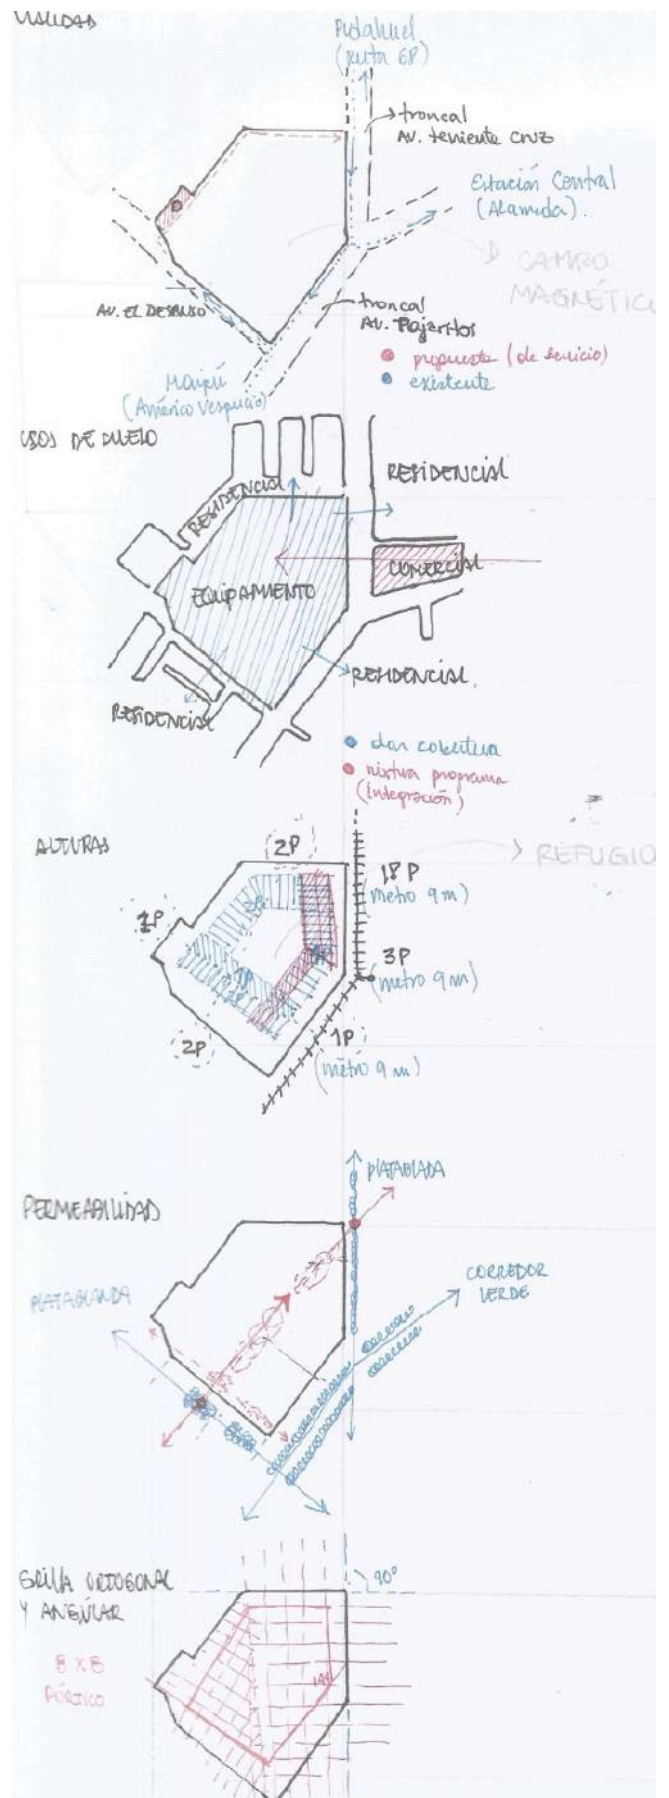 VIALIDAD
Pudahuel
(ruta 68)
troncal
Av. teniente CRUZ
Estación Central
(Alameda).
CAMPO
MAGNÉTICO
AV. EL DESCANSO
troncal
AV. Pajaritos
propuesta (de servicio)
existente
Maipú
(Américo Vespucio)
USOS DE SUELO
RESIDENCIAL
RESIDENCIAL
COMERCIAL
EQUIPAMIENTO
RESIDENCIAL.
RESIDENCIAL
dar cobertura
mixtura programa
(integración)
ALTURAS
2P
REFUGIO
18 P
(metro 9 m)
1P
3P
(metro 9 m)
2P
1P
(metro 9 m)
PERMEABILIDAD
PLATABANDA
CORREDOR
VERDE
PLATABANDA
GRILLA ORTOGONAL
Y ANGULAR
90°
8 X 8
PÓRTICO